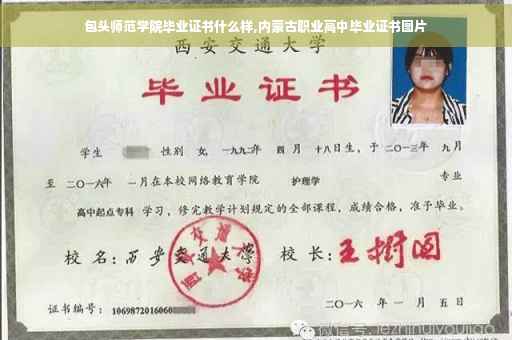 包头师范学院毕业证书什么样,内蒙古职业高中毕业证书图片
西安交通大学
毕业证书
学生 性别 女, 一九九二年 四月 十八日生, 于 二〇一三年 九月
至 二〇一六年 一月在本校网络教育学院 护理学 专业
高中起点专科 学习, 修完教学计划规定的全部课程, 成绩合格, 准予毕业。
校 名: 西安交通大学 校 长: 王树国
证书编号: 1069872016060
二〇一六 年 一 月 五 日
微信号: jezhihuiyoujiao